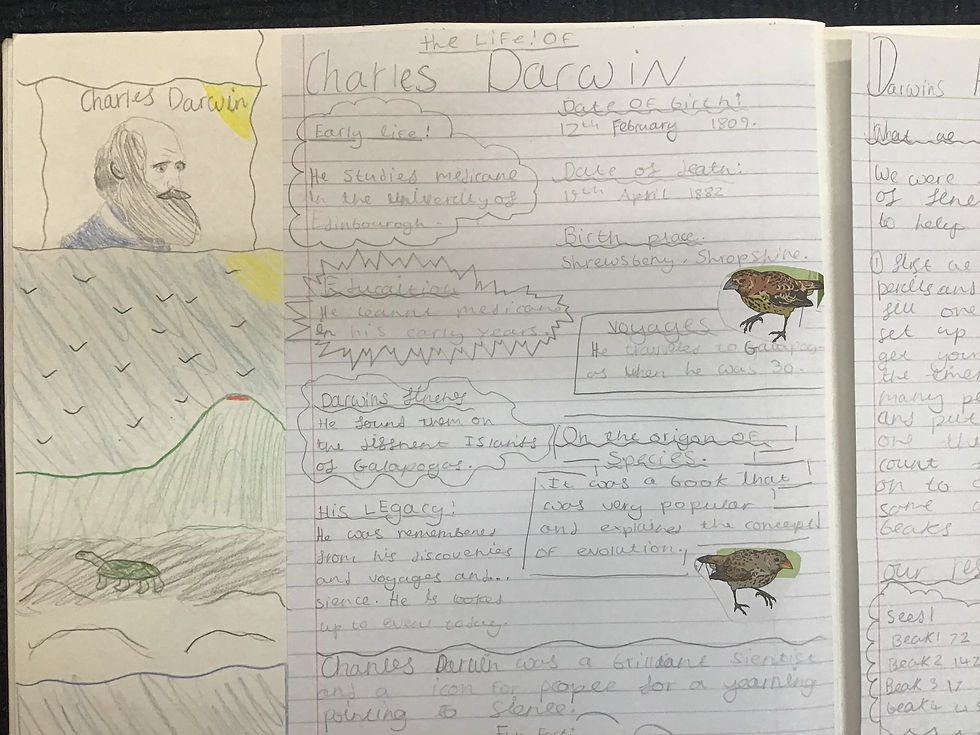 Charles Darwin
the LiFe! OF
Charles Darwin
Early life!
He studies medicane
in the univercity of
Edinbourogh.
Date OF birth!
12th February 1809.
Date of death:
19th April 1882
Birth place.
Shrewsbery, Shropshire.
Educaition
He learnt medicane
in his early years.
Voyages
He traveles to Galapag-
os when he was 30.
Darwins finches
He found them on
the diffrent Islants
of Galapogas.
On the origon OF
Species.
It was a book that
was very popular
and explaines the concept
OF evolution.
His LEgacy!
He was rememberes
from his discoveries
and voyages and...
sience. He is looked
up to even today.
Charles Darwin was a brilliant sientist
and a icon for people for a yearning
pointing to sience.
Fun Fact:
Darwins
What we
We were
of
to help
① first we
and
fill one
set up
get your
the timer
many
and put
one
count
on to
same
beaks
our res
Seed 1
Beak 1 72
Beak 2 142
Beak 3 17
beak 4